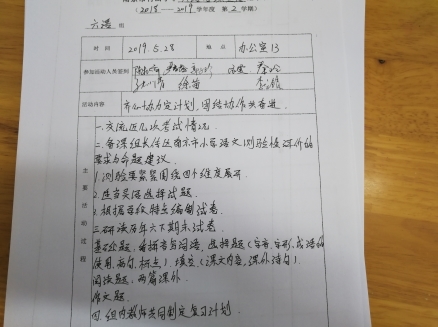 (2018——2019 学年度 第2学期)
六语 组
时 间 2019.5.28 地 点 办公室13
参加活动人员签到 徐苗
活动内容 齐心协力定计划,团结协作共奋进.
主要活动过程
一.交流近几次考试情况.
二.备课组长传达南京市小学语文测验检测评价的
要求与命题建议.
1.测验要紧紧围绕四个维度展开.
2.适当灵活选择试题.
3.根据年级特点编制试卷.
三.研读历年六下期末试卷.
基础题.看拼音写词语.选择题(字音.字形.成语的
使用.病句.标点).填空.(课文内容,课外诗句).
阅读题.两篇课外.
作文题.
四.组内教师共同制定复习计划.